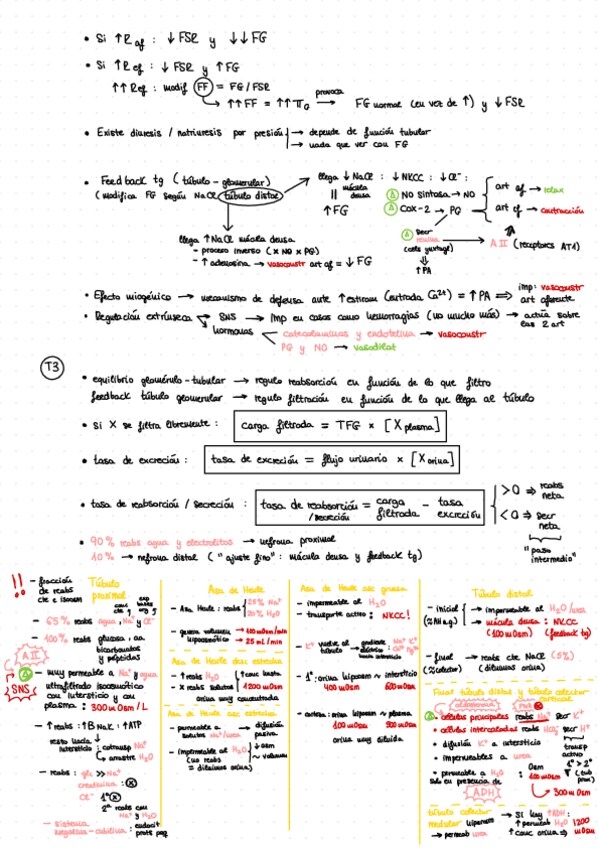 • Si ↑R af : ↓ FSR y ↓↓ FG
• Si ↑R ef : ↓ FSR y ↑ FG
↑↑ R ef : modif FF = FG / FSR
↑↑ FF = ↑↑ π₀ provoca → FG normal (en vez de ↑) y ↓ FSR
• Existe diuresis / natriuresis por presión → depende de función tubular
→ nada que ver con FG
• Feedback tg (túbulo - glomerular)
(modifica FG según NaCl túbulo distal)
llega ↓ NaCl : ↓ NKCC : ↓ Cl⁻ :
mácula densa
↑ FG
NO sintasa → NO
COX-2 → PG
art af → relax
art ef → contracción
secr renina
(cels yuxtagl)
→ A II (receptores AT1)
↑ PA
llega ↑ NaCl mácula densa
- proceso inverso (x NO x PG)
- ↑ adenosina → vasoconstr art af = ↓ FG
• Efecto miogénico → mecanismo de defensa ante ↑ estiram (entrada Ca²⁺) = ↑ PA ⇒ imp: vasoconstr art aferente
• Regulación extrínseca → SNS → Imp en casos como hemorragias (no mucho más) → actúa sobre las 2 art
hormonas → catecolaminas y endotelina → vasoconstr
PG y NO → vasodilat
T3
• equilibrio glomérulo - tubular → regulo reabsorción en función de lo que filtro
feedback túbulo glomerular → regulo filtración en función de lo que llega al túbulo
• Si X se filtra libremente : carga filtrada = TFG × [X plasma]
• tasa de excreción : tasa de excreción = flujo urinario × [X orina]
• tasa de reabsorción / secreción : tasa de reabsorción / secreción = carga filtrada - tasa excreción
> 0 ⇒ reabs neta
< 0 ⇒ secr neta
"paso intermedio"
• 90% reabs agua y electrolitos → nefrona proximal
10% → nefrona distal ("ajuste fino" : mácula densa y feedback tg)
!! - fracción de reabs cte e isoosm
Túbulo proximal
- 65% reabs agua, Na⁺ y Cl⁻
- 100% reabs glucosa, aa, bicarbonatos y péptidos
A II
SNS
- muy permeable a Na⁺ y agua
ultrafiltrado isoosmótico con intersticio y con plasma : 300 mOsm / L
- ↑ reabs : ↑ B NaK : ↑ ATP
- reabs : glc >> Na⁺
creatinina : x
2ª reabs con Na⁺ y H₂O
Asa de Henle
- Asa Henle : reabs 25% Na⁺
20% H₂O
Asa de Henle desc estrecha
- ↑ reabs H₂O
- x reabs solutos
1200 mOsm
orina muy concentrada
Asa de Henle asc estrecha
- permeable a solutos Na⁺/urea → difusión pasiva
- impermeable al H₂O
↓ osm
~ volumen
Asa de Henle asc gruesa
- impermeable al H₂O
- transporte activo : NKCC!
- K⁺ vuelve al túbulo
- 1º: orina hiperosm ~ intersticio
400 mOsm 600 mOsm
- orina hiposm ~ plasma
100 mOsm 300 mOsm
orina muy diluida
Túbulo distal
- inicial → impermeable al H₂O/urea
→ mácula densa : NKCC
(100 mOsm) (feedback tg)
- final → reabs cte NaCl (5%)
(≈ colector) (diluimos orina)
Final túbulo distal y túbulo colector cortical
• células principales reabs Na⁺ secr K⁺
• células intercaladas reabs HCO₃⁻ secr H⁺
• difusión K⁺ a intersticio
• impermeables a urea
• permeable a H₂O solo en presencia de ADH
transp activo
300 mOsm
túbulo colector medular
→ permeab urea
→ si hay ↑ ADH :
↑ permeab H₂O 1200 mOsm
↑ conc orina